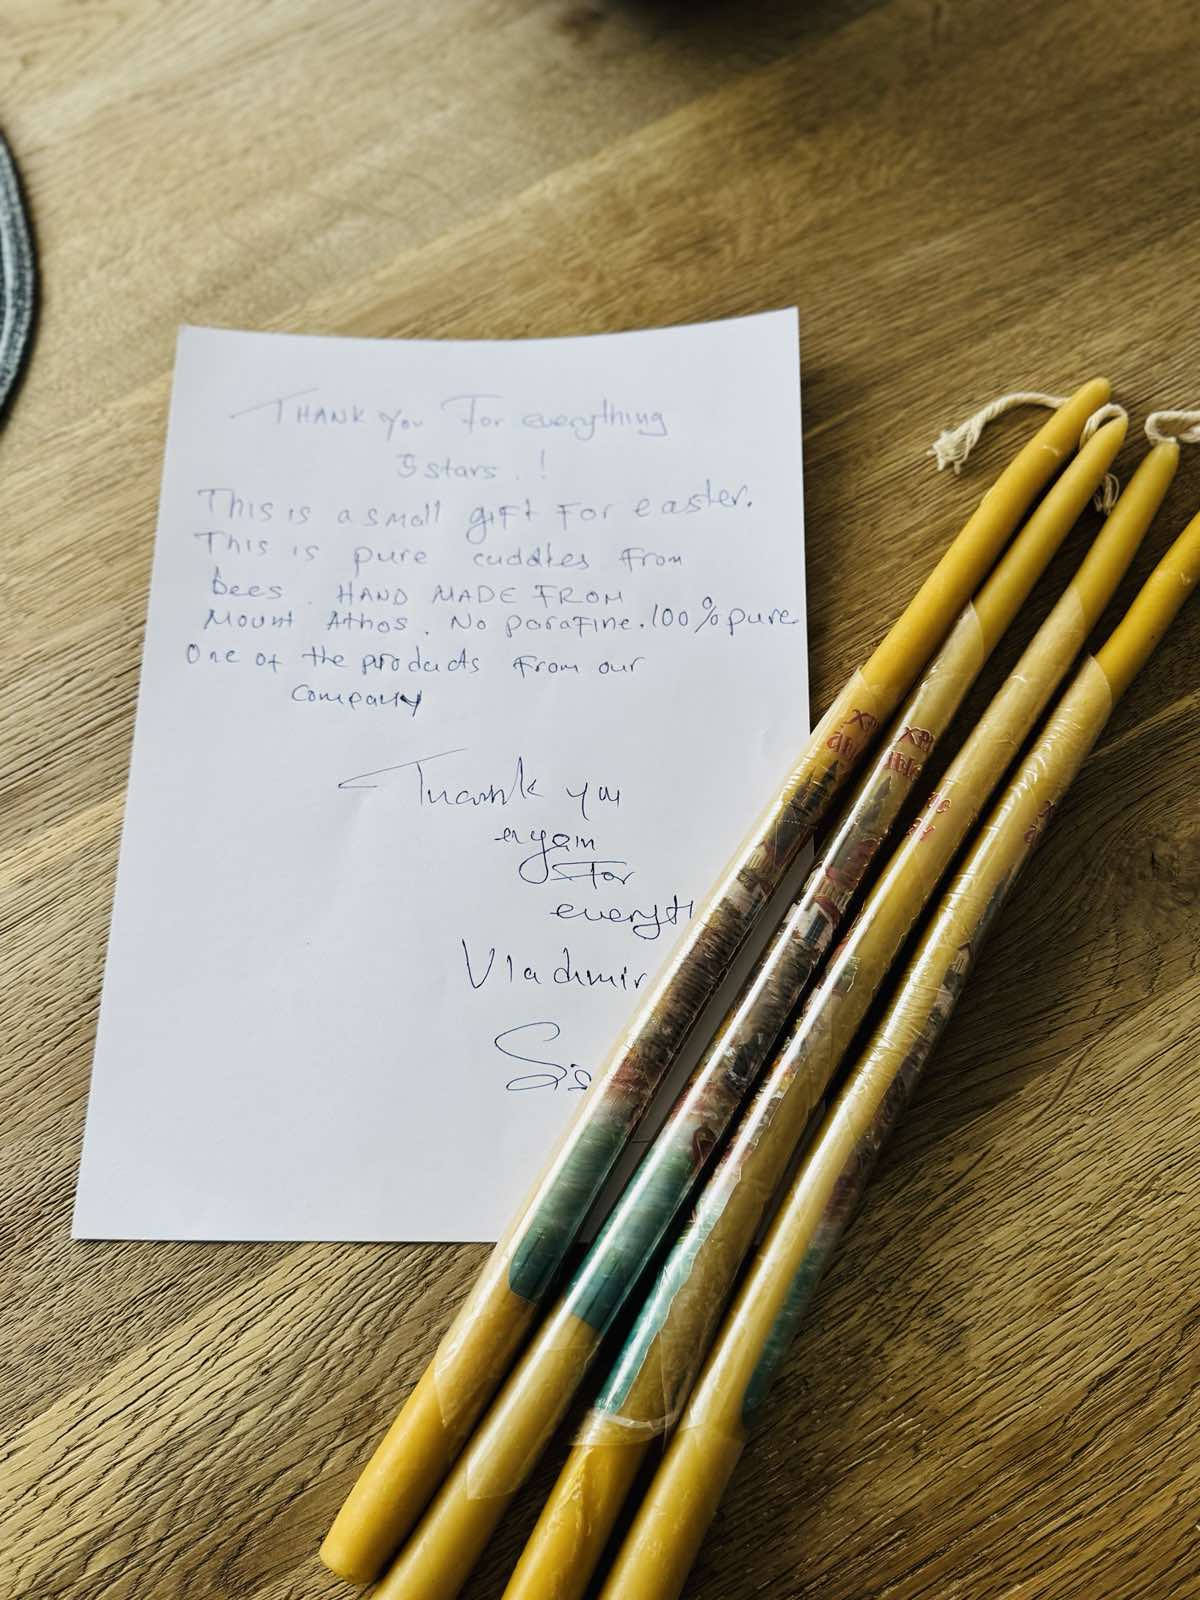 THANK You For everything
5 stars . !
This is a small gift For easter.
This is pure cuddles from
bees . HAND MADE FROM
Mount Athos . No parafine . 100% pure
One of the products From our
company
Thank you
eryain
For
everyth
Vladimir
Sis
ХРИ
ХРИ